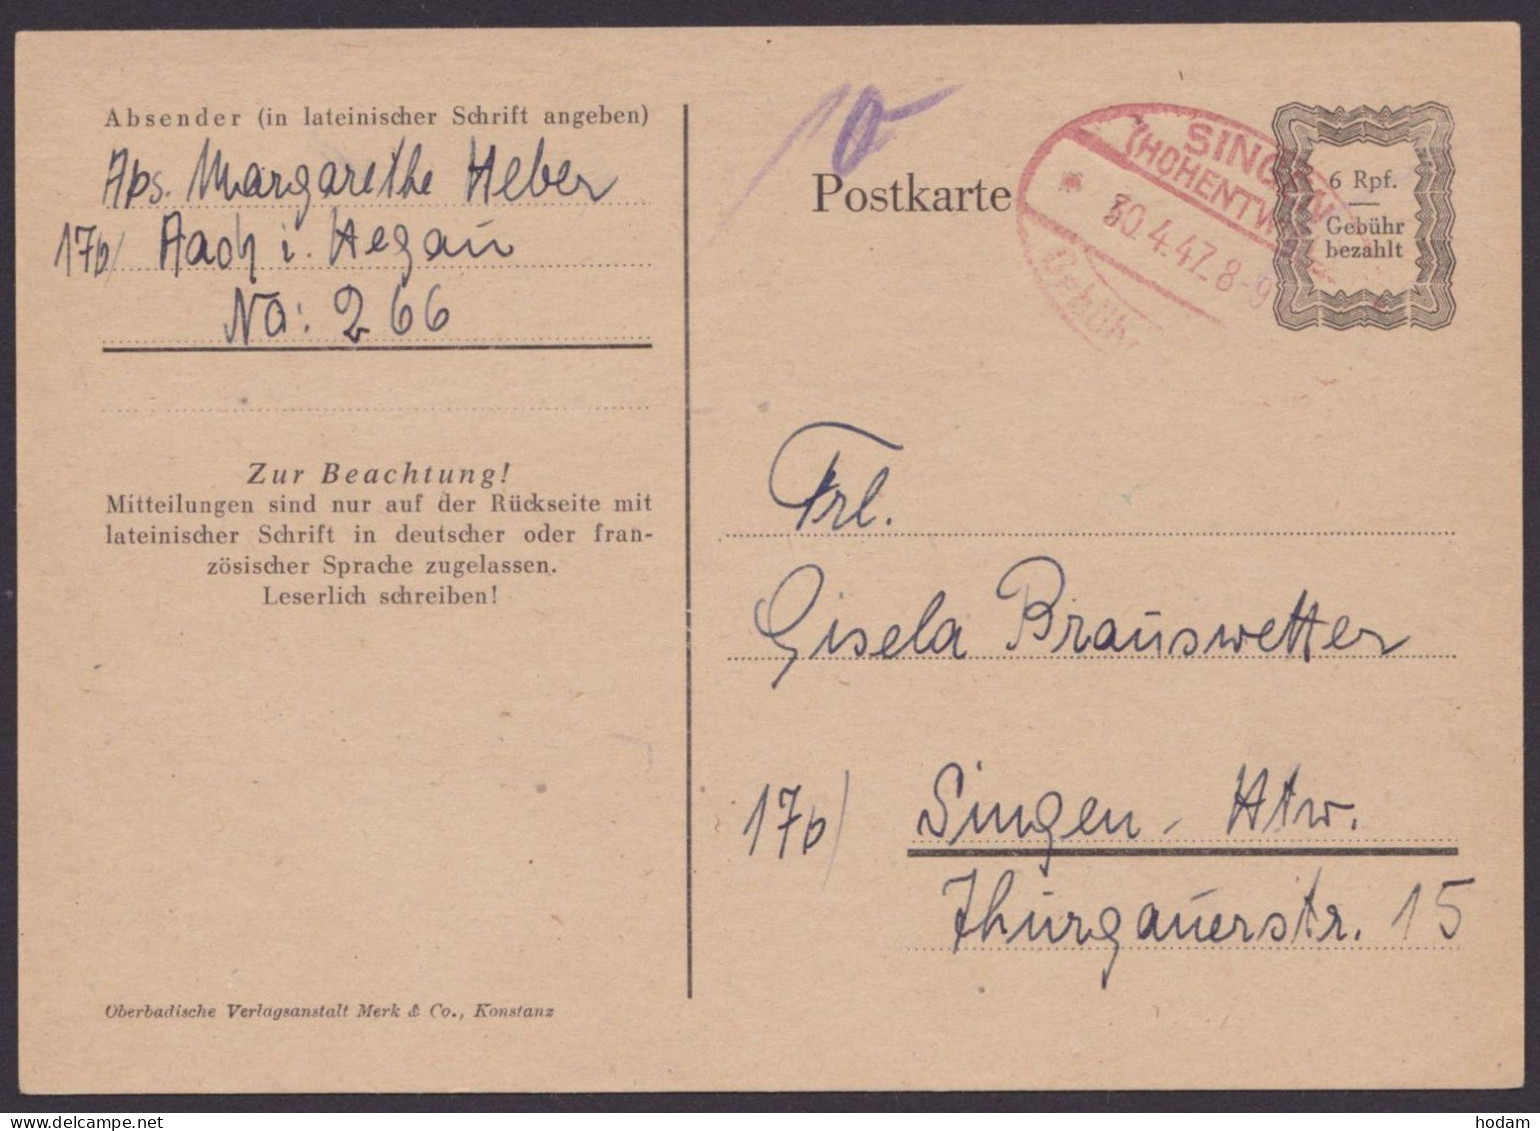 Absender (in lateinischer Schrift angeben)
Aps. Margarethe Heber
17b/ Aach i. Hegau
No: 266
Zur Beachtung!
Mitteilungen sind nur auf der Rückseite mit
lateinischer Schrift in deutscher oder fran-
zösischer Sprache zugelassen.
Leserlich schreiben!
Oberbadische Verlagsanstalt Merk & Co., Konstanz
10
Postkarte
SINGEN
(HOHENTWIEL)
* 30.4.47. 8-9
Gebühr
6 Rpf.
Gebühr
bezahlt
Frl.
Gisela Brauswetter
17b/ Singen - Htw.
Thurgauerstr. 15
hodam